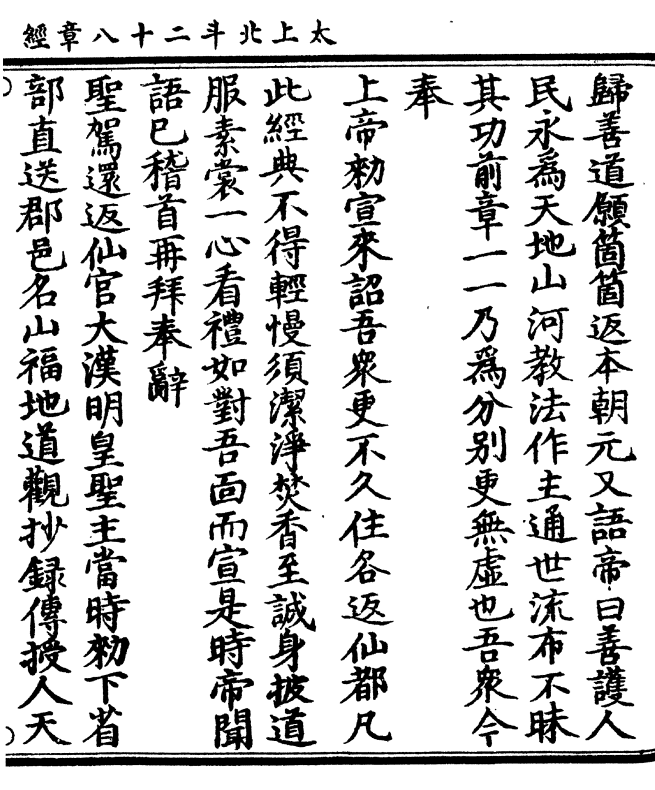 太上北斗二十八章經
歸善道願箇箇返本朝元又語帝曰善護人
民永爲天地山河教法作主通世流布不昧
其功前章一一乃爲分别更無虛也吾衆今
奉
上帝勑宣來詔吾衆更不久住各返仙都凡
此經典不得輕慢須潔淨焚香至誠身披道
服素裳一心看禮如對吾面而宣是時帝聞
語已稽首再拜奉辭
聖駕還返仙官大漢明皇聖主當時勑下省
部直送郡邑名山福地道觀抄録傳授人天